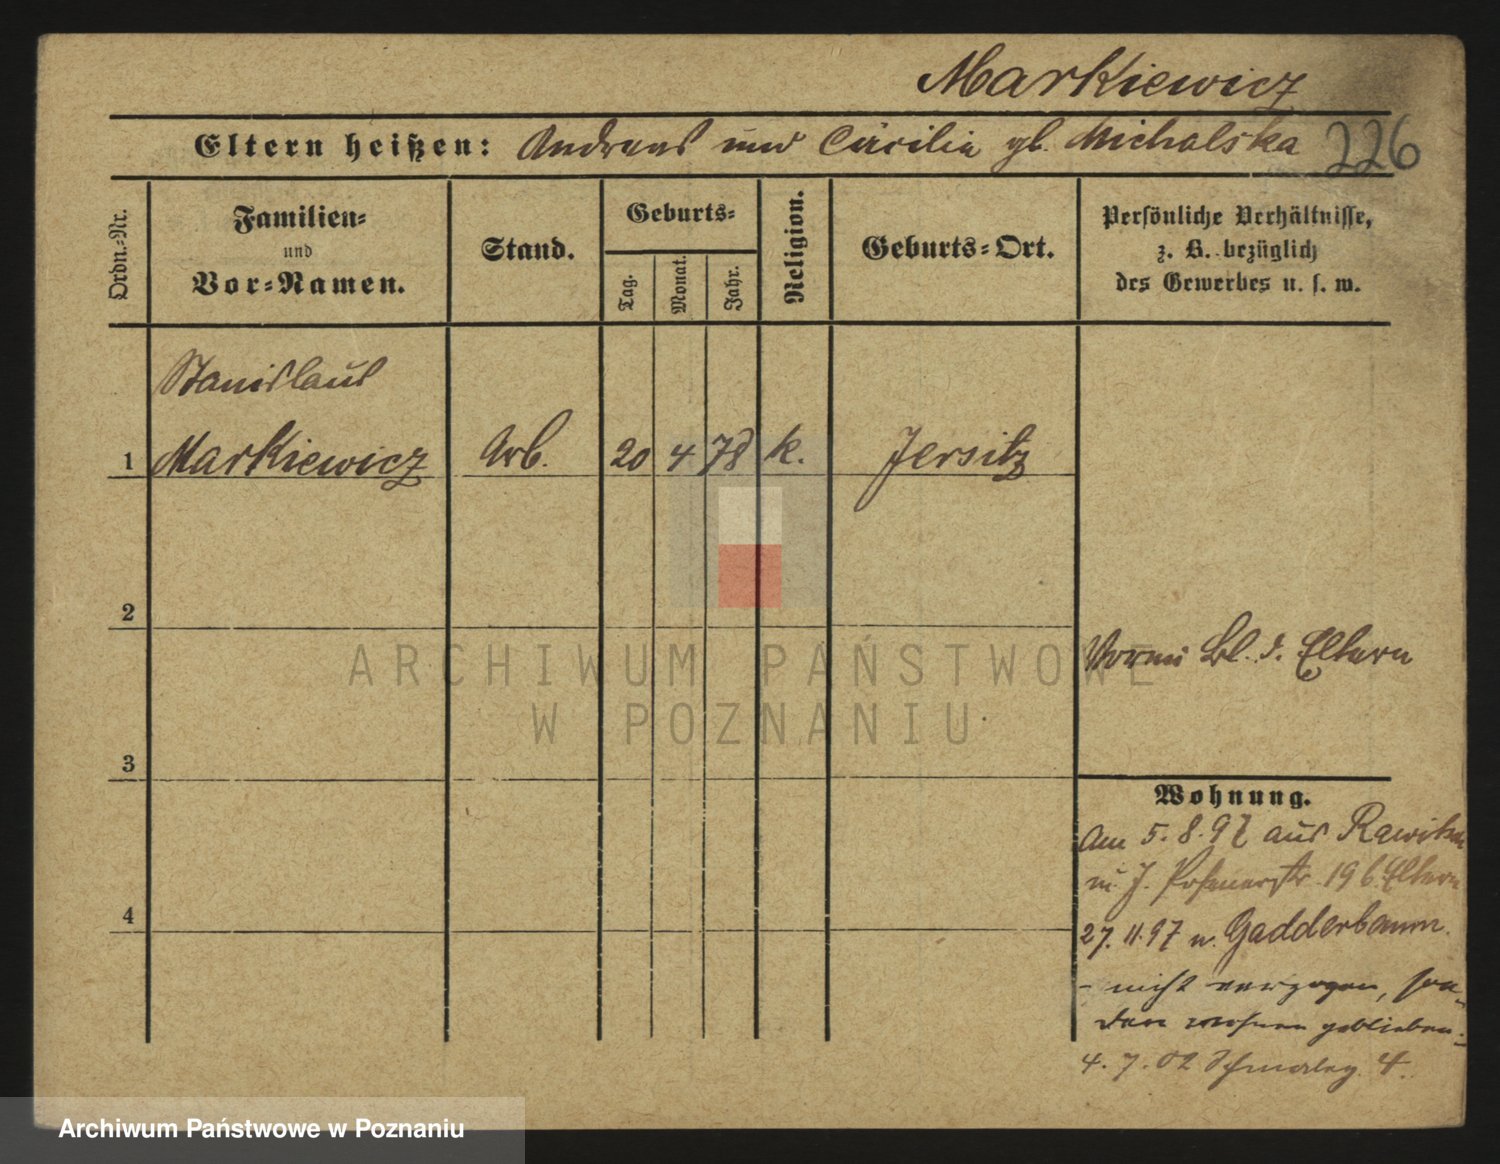 Markiewicz
Eltern heißen: Andreas und Cäcilia gb. Michalska 226
Ordn.-Nr.
Familien-
und
Vor-Namen.
Stand.
Geburts-
Tag.
Monat.
Jahr.
Religion.
Geburts-Ort.
Persönliche Verhältnisse,
z. B. bezüglich
des Gewerbes u. s. w.
Stanislaus
1 Markiewicz Arb. 20 4 78 k. Jersitz
2
Eltern
ARCHIWUM PAŃSTWOWE
W POZNANIU
3
Wohnung.
Am 5. 8. 97 aus
J. Posenerstr. 19 b. Eltern
4
27. 11. 97 n. Gadderbaum.
- nicht verzogen, son-
dern wohnen geblieben.-
4. 7. 02 4.
Archiwum Państwowe w Poznaniu